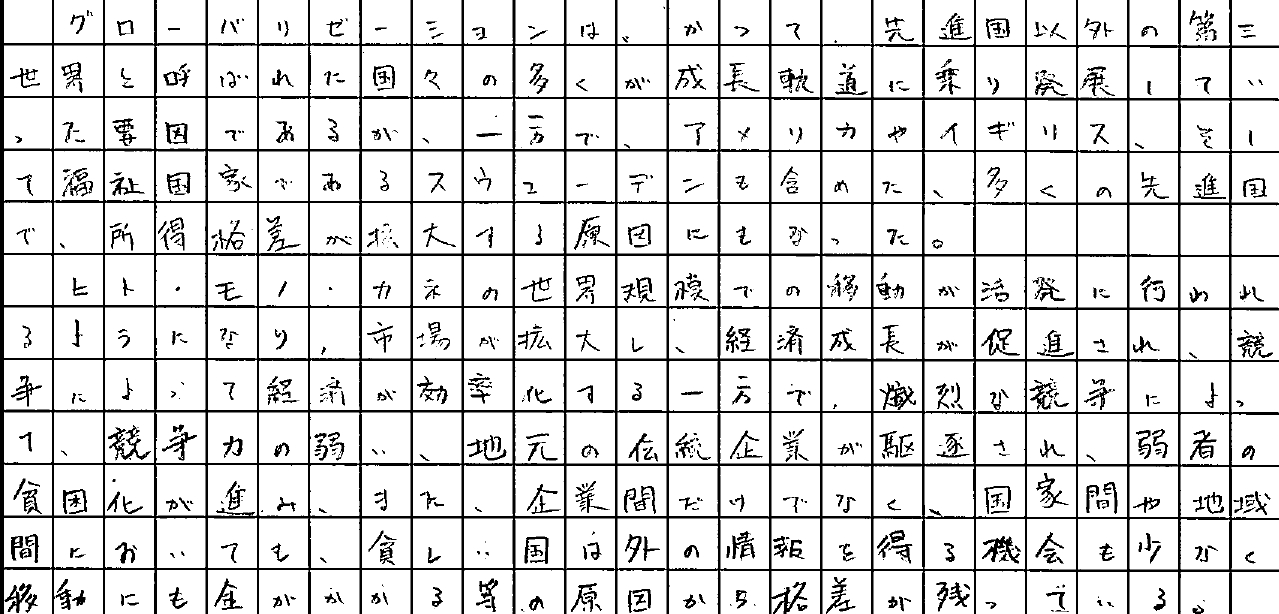 グローバリゼーションは、かつて、先進国以外の第三
世界と呼ばれた国々の多くが成長軌道に乗り発展してい
った要因であるが、一方で、アメリカやイギリス、そし
て福祉国家であるスウェーデンも含めた、多くの先進国
で、所得格差が拡大する原因にもなった。
　ヒト・モノ・カネの世界規模での移動が活発に行われ
るようになり、市場が拡大し、経済成長が促進され、競
争によって経済が効率化する一方で、熾烈な競争によっ
て、競争力の弱い、地元の伝統企業が駆逐され、弱者の
貧困化が進み、また、企業間だけでなく、国家間や地域
間においても、貧しい国は外の情報を得る機会も少なく
移動にも金がかかる等の原因から格差が残っている。